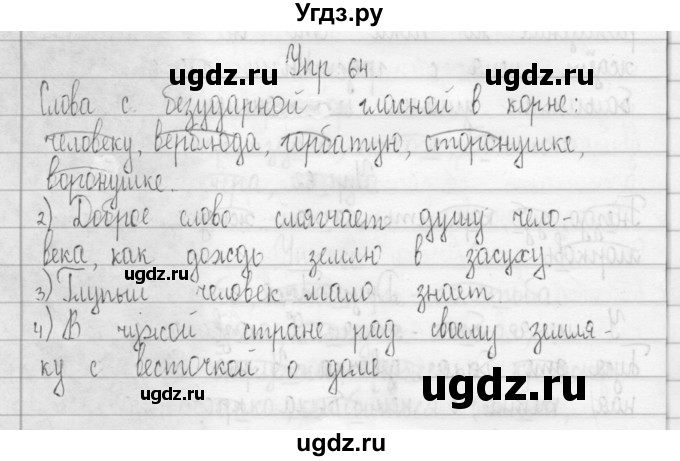 Угдз.ру
Упр 64.
Слова с безударной гласной в корне:
человеку, верблюда, горбатую, сторонушке,
воронушке.
2) Доброе слово смягчает душу чело-
века, как дождь землю в засуху.
3) Глупый человек мало знает
4) В чужой стране рад своему земля-
ку с весточкой о доме
ugdz.ru
ugdz.ru
ugdz.ru
ugdz.ru
ugdz.ru
ugdz.ru
ugdz.ru